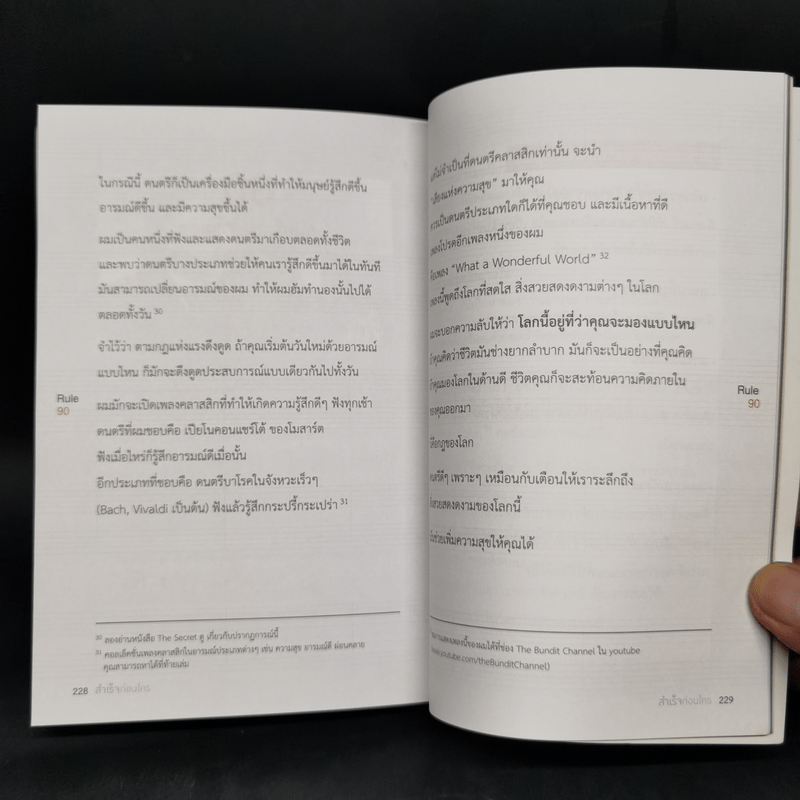 ในกรณีนี้ ดนตรีก็เป็นเครื่องมือชิ้นหนึ่งที่ทำให้มนุษย์รู้สึกดีขึ้น
อารมณ์ดีขึ้น และมีความสุขขึ้นได้
ผมเป็นคนหนึ่งที่ฟังและแสดงดนตรีมาเกือบตลอดทั้งชีวิต
และพบว่าดนตรีบางประเภทช่วยให้คนเรารู้สึกดีขึ้นมาได้ในทันที
มันสามารถเปลี่ยนอารมณ์ของผม ทำให้ผมฮัมทำนองนั้นไปได้
ตลอดทั้งวัน 30
จำไว้ว่า ตามกฎแห่งแรงดึงดูด ถ้าคุณเริ่มต้นวันใหม่ด้วยอารมณ์
แบบไหน ก็มักจะดึงดูดประสบการณ์แบบเดียวกันไปทั้งวัน
Rule
90
ผมมักจะเปิดเพลงคลาสสิกที่ทำให้เกิดความรู้สึกดีๆ ฟังทุกเช้า
ดนตรีที่ผมชอบคือ เปียโนคอนแชร์โต้ ของโมสาร์ต
ฟังเมื่อไหร่ก็รู้สึกอารมณ์ดีเมื่อนั้น
อีกประเภทที่ชอบคือ ดนตรีบาโรคในจังหวะเร็วๆ
(Bach, Vivaldi เป็นต้น) ฟังแล้วรู้สึกกระปรี้กระเปร่า 31
30 ลองอ่านหนังสือ The Secret ดู เกี่ยวกับปรากฏการณ์นี้
31 คอลเล็คชั่นเพลงคลาสสิกในอารมณ์ประเภทต่างๆ เช่น ความสุข อารมณ์ดี ผ่อนคลาย
คุณสามารถหาได้ที่ท้ายเล่ม
228 สำเร็จก่อนใคร
จำเป็นที่ดนตรีคลาสสิกเท่านั้น จะนำ
แห่งความสุข" มาให้คุณ
เป็นดนตรีประเภทใดก็ได้ที่คุณชอบ และมีเนื้อหาที่ดี
เพลงโปรดอีกเพลงหนึ่งของผม
เพลง "What a Wonderful World" 32
เพลงนี้พูดถึงโลกที่สดใส สิ่งสวยสดงดงามต่างๆ ในโลก
จะบอกความลับให้ว่า โลกนี้อยู่ที่ว่าคุณจะมองแบบไหน
ถ้าคุณคิดว่าชีวิตมันช่างยากลำบาก มันก็จะเป็นอย่างที่คุณคิด
ถ้าคุณมองโลกในด้านดี ชีวิตคุณก็จะสะท้อนความคิดภายใน
ของคุณออกมา
Rule
90
กฎของโลก
ดนตรีดีๆ เพราะๆ เหมือนกับเตือนให้เราระลึกถึง
สวยสดงดงามของโลกนี้
ช่วยเพิ่มความสุขให้คุณได้
เพลงนี้ของผมได้ที่ช่อง The Bundit Channel ใน youtube
youtube.com/theBunditChannel)
สำเร็จก่อนใคร 229